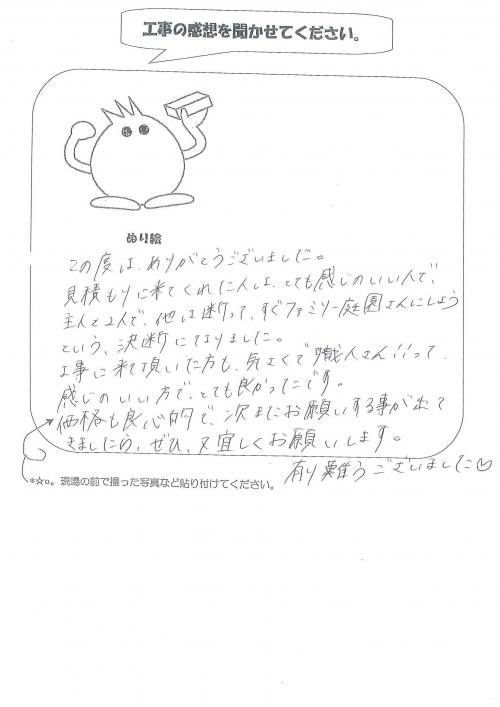 工事の感想を聞かせてください。
ぬり絵
この度は、ありがとうございました。
見積もりに来てくれた人は、とても感じのいい人で、
主人と2人で、他は断って、すぐファミリー庭園さんにしよう
という、決断にてなりました。
工事に来て頂いた方も、気さくで職人さん!!って、
感じのいい方で、とても良かったです。
価格も良心的で、次またお願いする事が出て
きましたら、ぜひ、又宜しくお願いします。
有り難うございました♡
*☆。現場の前で撮った写真など貼り付けてください。